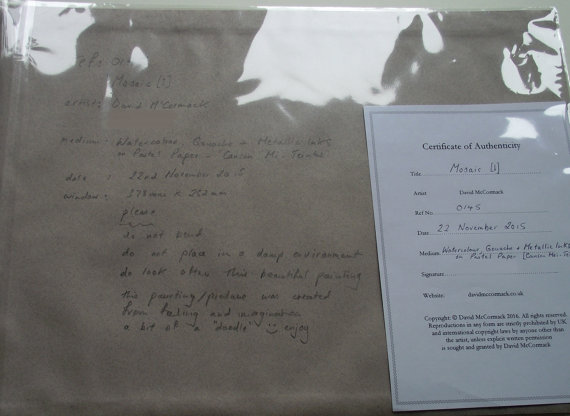 Mosaic [1]
artist: David McCormack
medium: Watercolour, Gouache + Metallic Inks
on Pastel Paper - Canson "Mi-Teintes"
date : 22nd November 2015
window: 178mm x 252mm
please
do not bend
do not place in a damp environment
do look often this beautiful painting
this painting/picture was created
from feeling and imagination
a bit of a "doodle" enjoy
Certificate of Authenticity
Title Mosaic [1]
Artist David McCormack
Ref No. 0145
Date 22 November 2015
Medium Watercolour, Gouache + Metallic Inks
on Pastel Paper [Canson Mi-Te
Signature
Website: davidmccormack.co.uk
Copyright: © David McCormack 2016. All rights reserved.
Reproductions in any form are strictly prohibited by UK
and international copyright laws by anyone other than
the artist, unless explicit written permission
is sought and granted by David McCormack